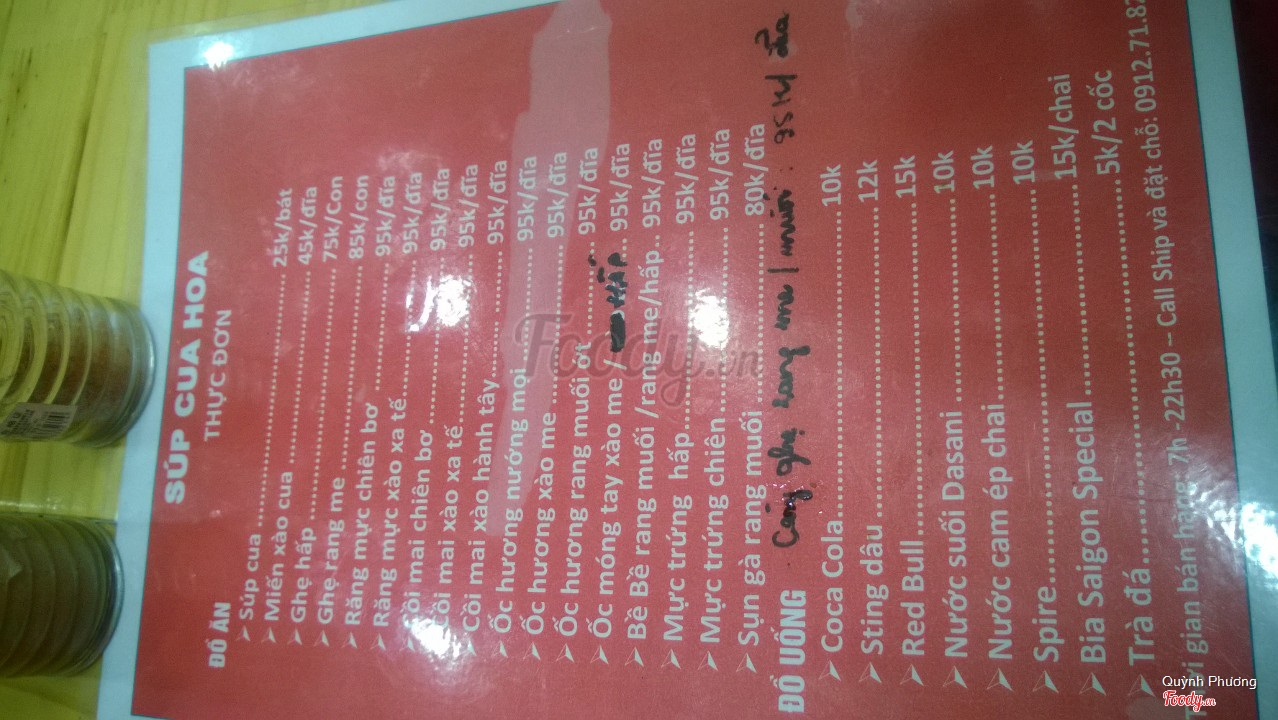 SÚP CUA HOA
THỰC ĐƠN
ĐỒ ĂN
➢ Súp cua ........ 25k/bát
➢ Miến xào cua ........ 45k/đĩa
➢ Ghẹ hấp ........ 75k/Con
➢ Ghẹ rang me ........ 85k/con
➢ Răng mực chiên bơ ........ 95k/đĩa
➢ Răng mực xào xa tế........ 95k/đĩa
➢ Cồi mai chiên bơ........ 95k/đĩa
➢ Cồi mai xào xa tế........ 95k/đĩa
➢ Cồi mai xào hành tây........ 95k/đĩa
➢ Ốc hương nướng mọi........ 95k/đĩa
➢ Ốc hương xào me ........ 95k/đĩa
➢ Ốc hương rang muối ớt........ 95k/đĩa
➢ Ốc móng tay xào me / HẤP.. 95k/đĩa
➢ Bề Bề rang muối /rang me/hấp.. 95k/đĩa
➢ Mực trứng hấp........ 95k/đĩa
➢ Mực trứng chiên........ 95k/đĩa
➢ Sụn gà rang muối ........ 80k/đĩa
Càng ghẹ rang me / muối : 95k/ đĩa
ĐỒ UỐNG
➢ Coca Cola........ 10k
➢ Sting dâu ........ 12k
➢ Red Bull........ 15k
➢ Nước suối Dasani ........ 10k
➢ Nước cam ép chai........ 10k
➢ Spire........ 10k
➢ Bia Saigon Special........ 15k/chai
➢ Trà đá........ 5k/2 cốc
gian bán hàng: 7h -22h30 – Call Ship và đặt chỗ: 0912.71.82
Foody.vn
Quỳnh Phương
Foody.vn